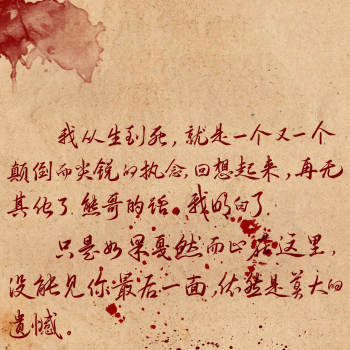 我从生到死，就是一个又一个
颠倒而尖锐的执念，回想起来，再无
其他了。熊哥的话。我明白了。
只是如果戛然而止在这里，
没能见你最后一面，依然是莫大的
遗憾。